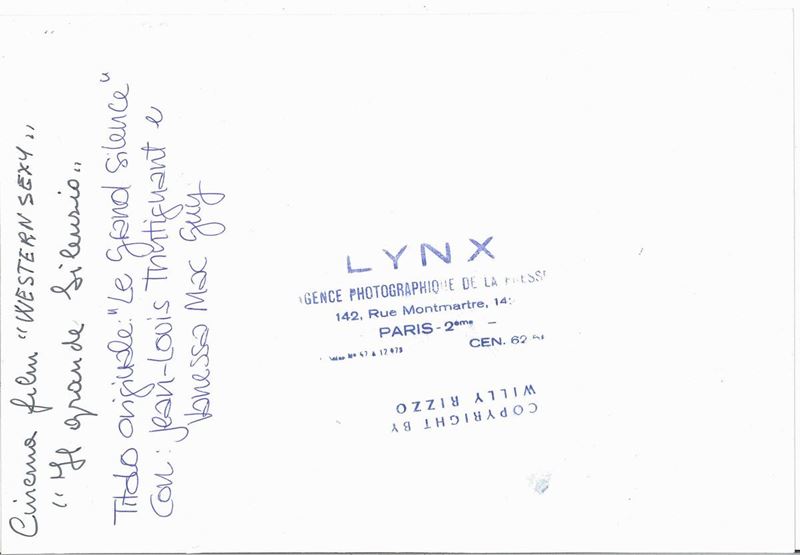 Cinema film "WESTERN SEXY"
"Il grande Silenzio"
Titolo originale: "Le Grand Silence"
Con: Jean-Louis Trintignant e
Vanessa Mac Guy
LYNX
AGENCE PHOTOGRAPHIQUE DE LA PRESSE
142, Rue Montmartre, 14
PARIS-2eme
CEN. 62
COPYRIGHT BY
WILLY RIZZO